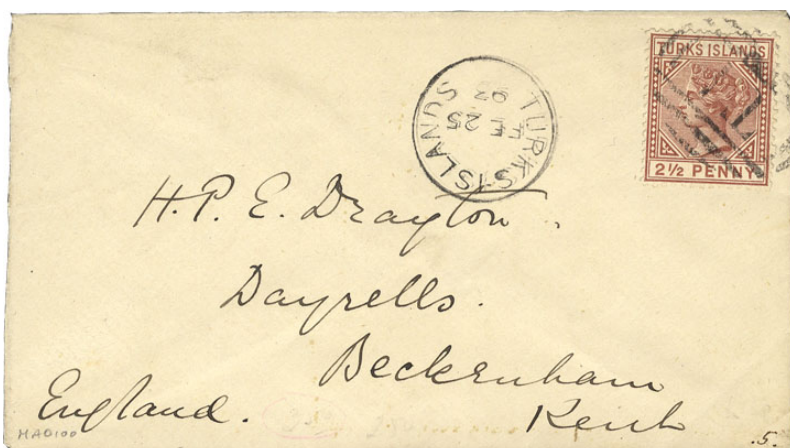 TURKS ISLANDS
2½ PENNY
TURKS ISLANDS
FE 25
92
H. P. E. Drayton.
Dayrells.
Beckenham
Kent
England.
HA0100
.5.